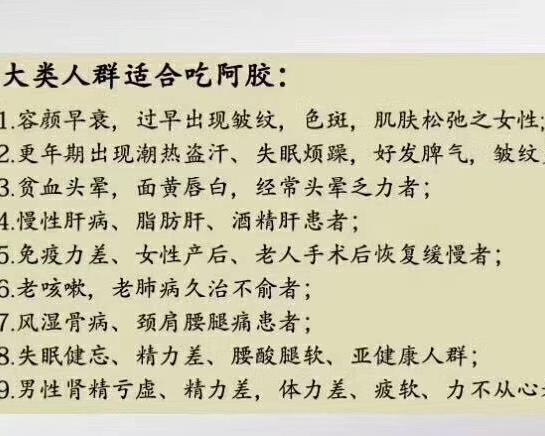 大类人群适合吃阿胶：
1.容颜早衰，过早出现皱纹，色斑，肌肤松弛之女性；
2.更年期出现潮热盗汗、失眠烦躁，好发脾气，皱纹
3.贫血头晕，面黄唇白，经常头晕乏力者；
4.慢性肝病、脂肪肝、酒精肝患者；
5.免疫力差、女性产后、老人手术后恢复缓慢者；
6.老咳嗽，老肺病久治不俞者；
7.风湿骨病、颈肩腰腿痛患者；
8.失眠健忘、精力差、腰酸腿软、亚健康人群；
9.男性肾精亏虚、精力差，体力差、疲软、力不从心